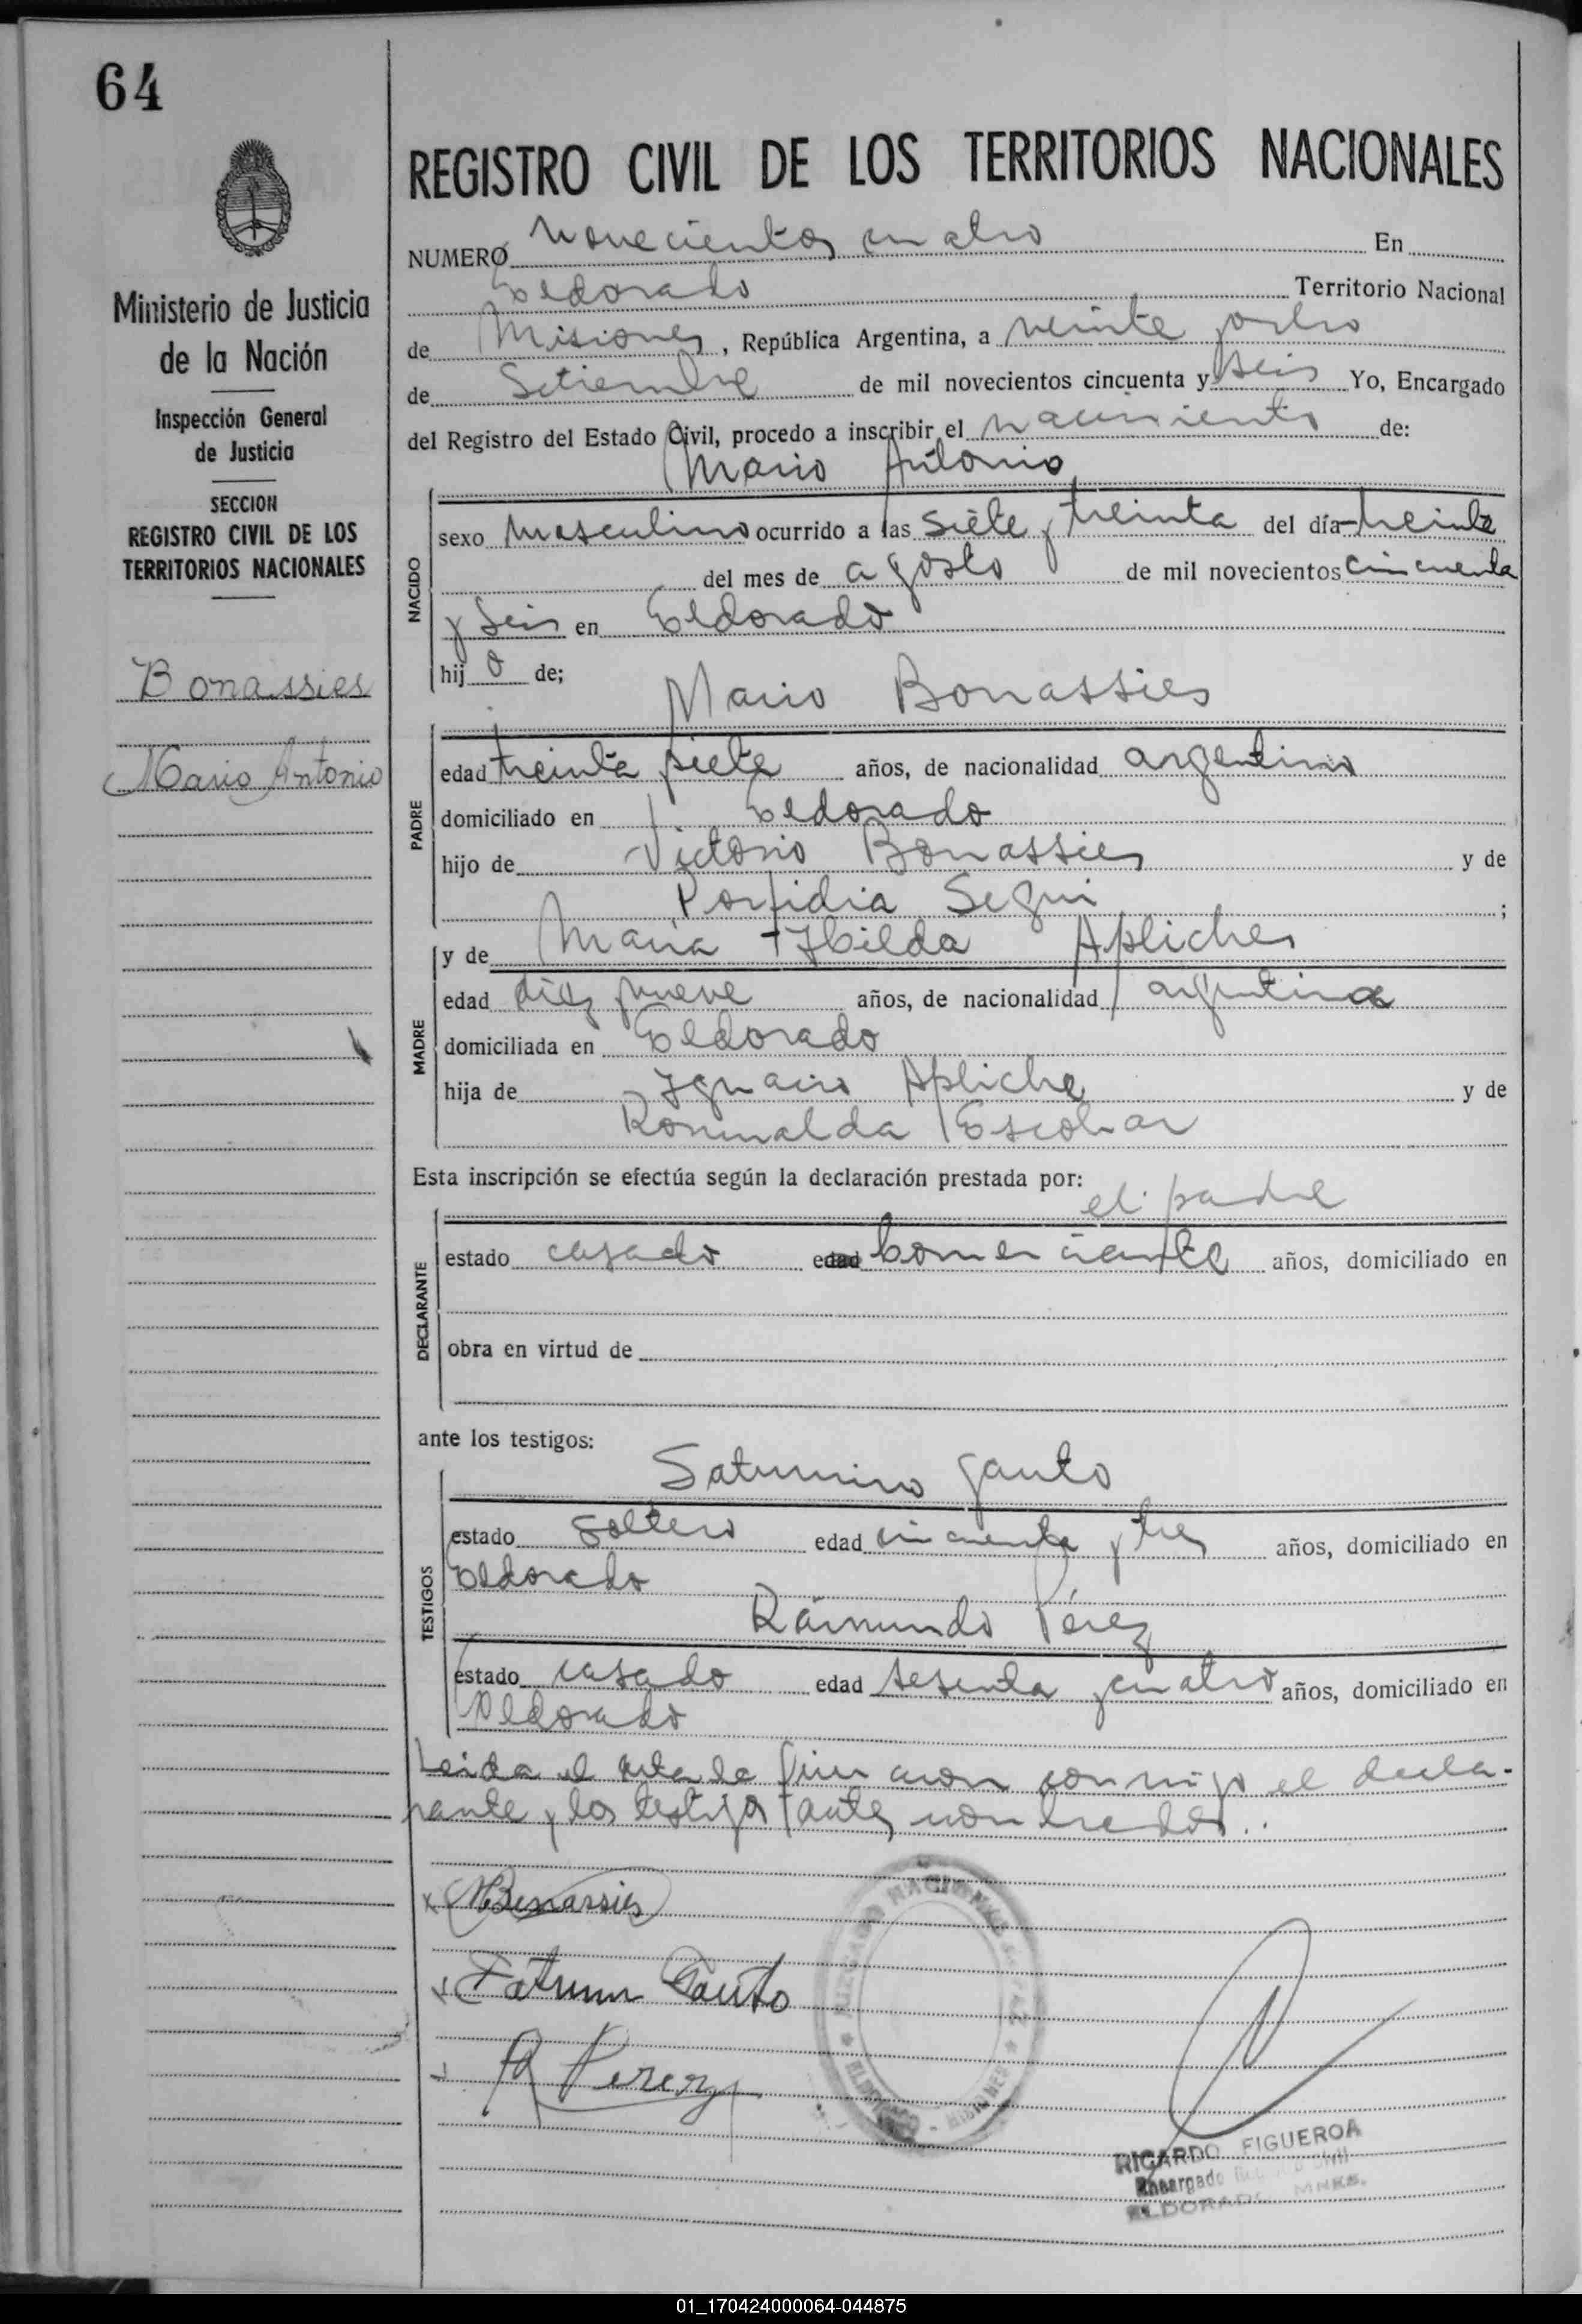 64
REGISTRO CIVIL DE LOS TERRITORIOS NACIONALES
NUMERO novecientos cuatro En
Eldorado Territorio Nacional
de Misiones, República Argentina, a veinte y ocho
de Setiembre de mil novecientos cincuenta y seis Yo, Encargado
del Registro del Estado Civil, procedo a inscribir el nacimiento de:
Mario Antonio
Ministerio de Justicia
de la Nación
Inspección General
de Justicia
SECCION
REGISTRO CIVIL DE LOS
TERRITORIOS NACIONALES
Bonassies
Mario Antonio
NACIDO
sexo masculino ocurrido a las siete y treinta del día treinta
del mes de agosto de mil novecientos cincuenta
y seis en Eldorado
hij o de;
Mario Bonassies
PADRE
edad treinta y siete años, de nacionalidad argentino
domiciliado en Eldorado
hijo de Victorio Bonassies y de
Porfidia Segui ;
y de Maria Hilda Apliches
MADRE
edad diez y nueve años, de nacionalidad argentina
domiciliada en Eldorado
hija de Ignacio Apliche y de
Romualda Escobar
Esta inscripción se efectúa según la declaración prestada por:
el padre
DECLARANTE
estado casado edad comerciante años, domiciliado en
obra en virtud de
ante los testigos:
Saturnino Gauto
TESTIGOS
estado soltero edad cincuenta y tres años, domiciliado en
Eldorado
Raimundo Pérez
estado casado edad sesenta y cuatro años, domiciliado en
Eldorado
Leida el acta la firmaron conmigo el decla-
rante y los testigos antes nombrados..
MBonassies
Saturnin Gauto
R Perez
JUZGADO NACIONAL DE PAZ
ELDORADO - MISIONES
RICARDO FIGUEROA
Encargado Registro Civil
ELDORADO MNES.
01_170424000064-044875